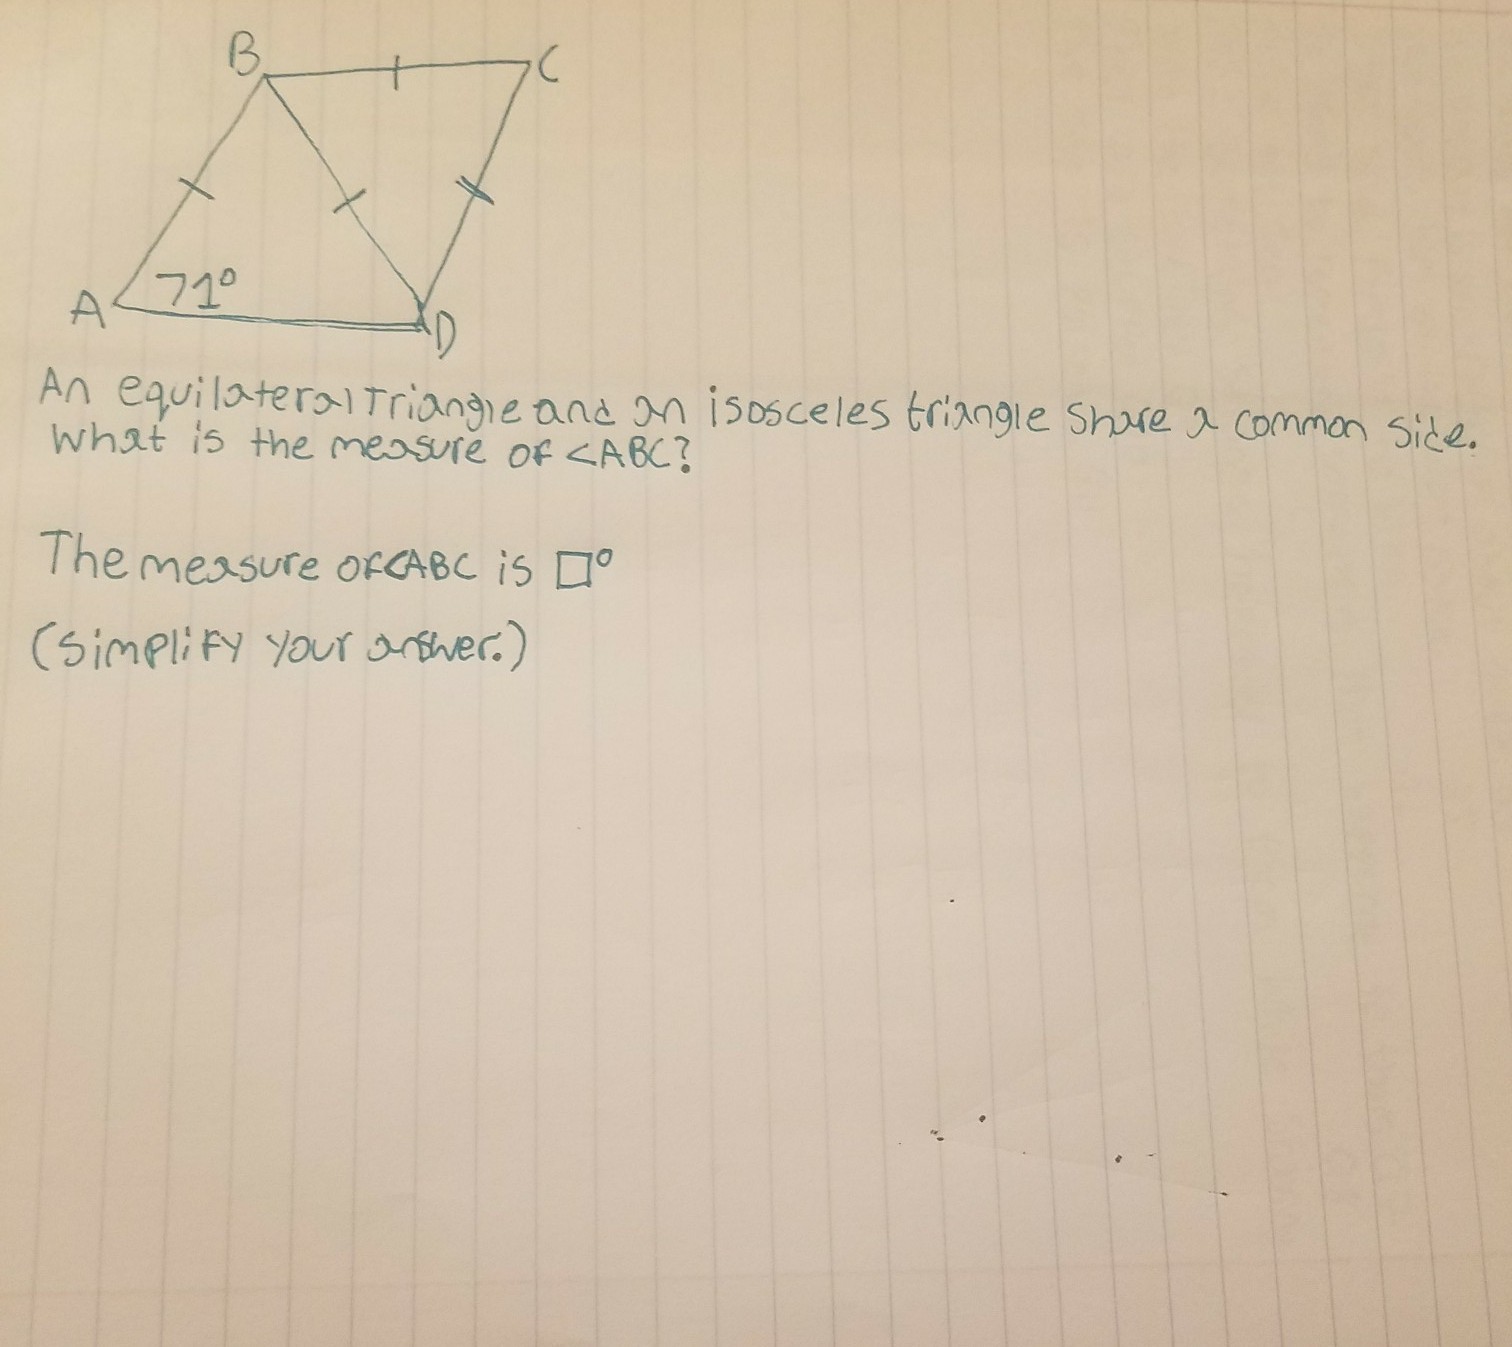 B
C
71°
A
D
An equilateral Triangle and an isosceles triangle share a common side.
What is the measure of <ABC?
The measure of <ABC is □°
(Simplify your answer.)